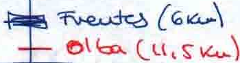 Fuentes (6km)
Olba (11,5 km)